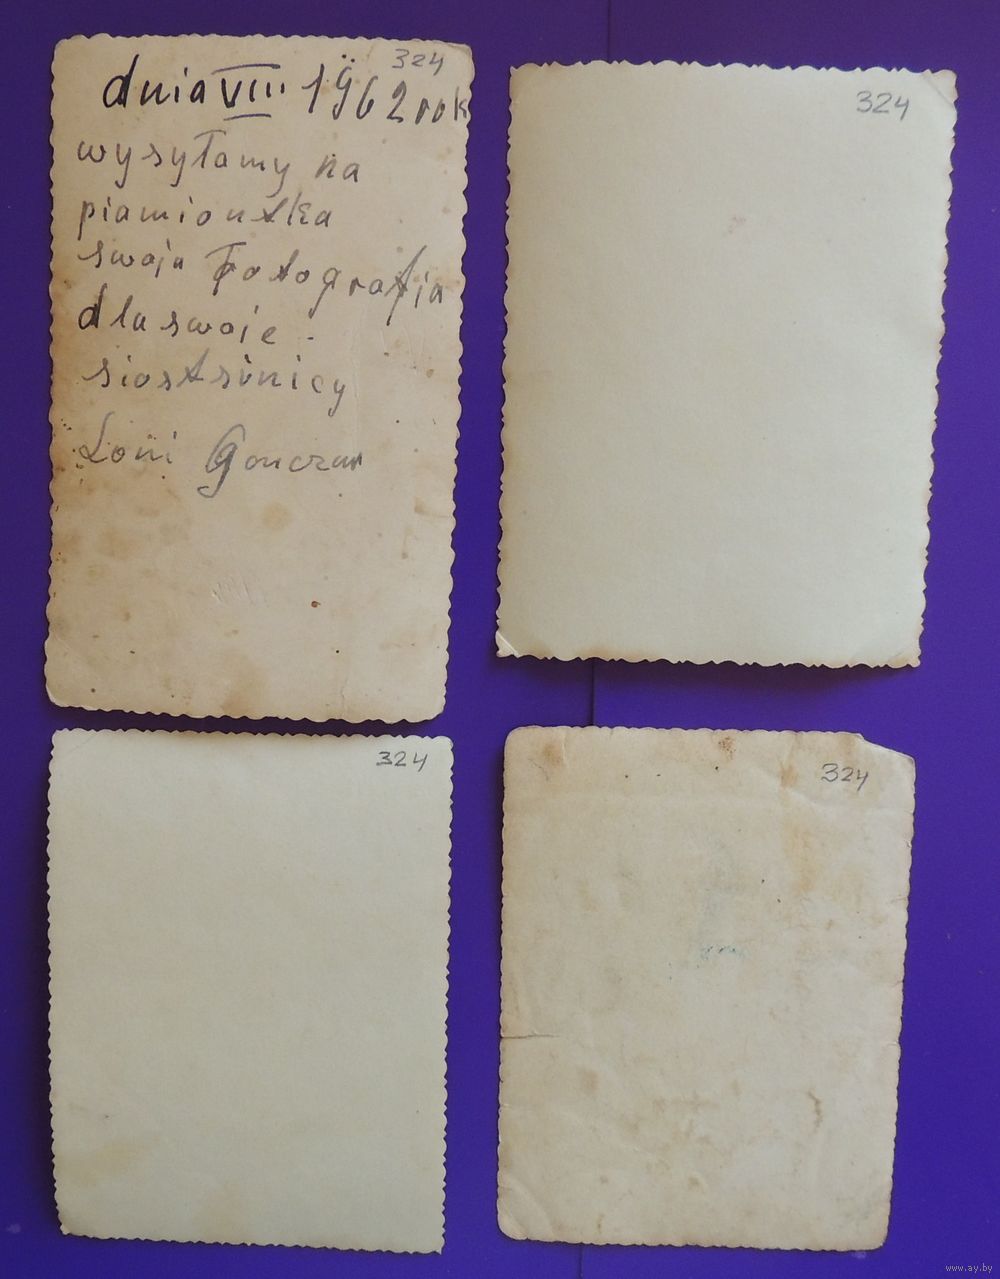 324
dnia VIII 1962 rok
wysyłamy na
piamiontka
swoja Fotografia
dla swoje
siostrinicy
Loni Gonczar
324
324
324
www.ay.by